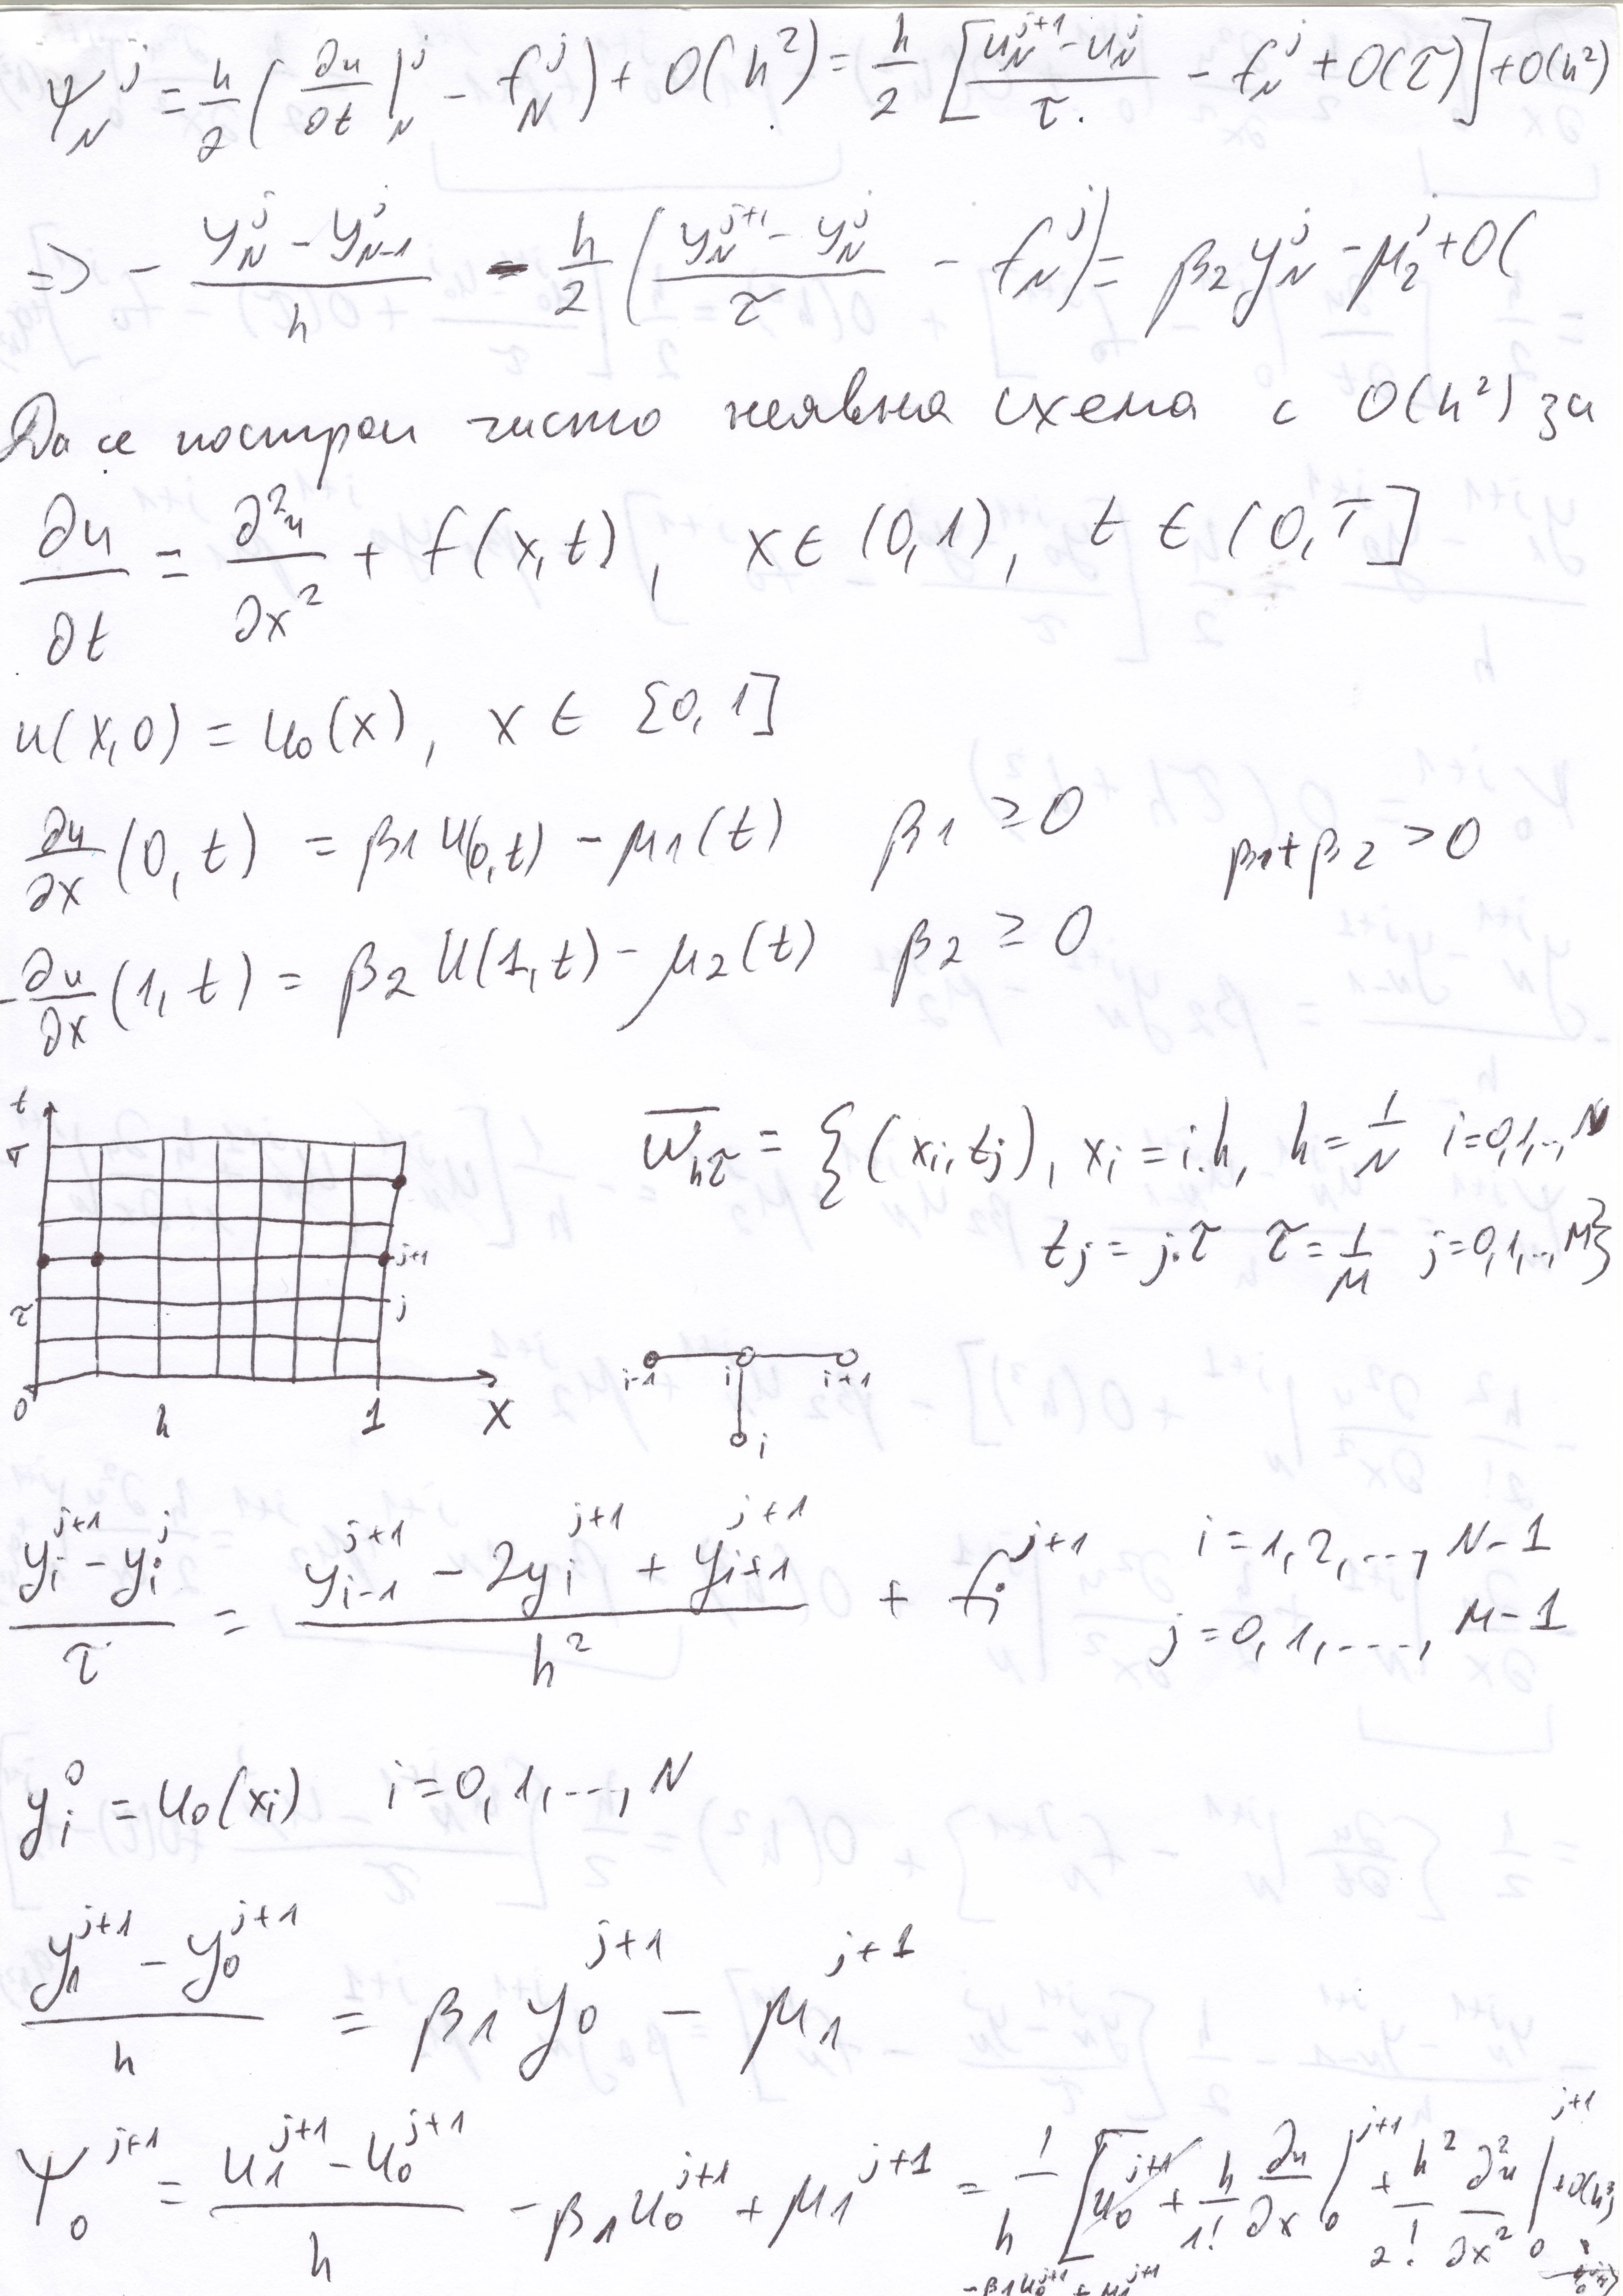 ψ_N^j = h/2 ( ∂u/∂t |_N^j - f_N^j ) + O(h²) = h/2 [ (u_N^{j+1} - u_N^j)/τ - f_N^j + O(τ) ] + O(h²)
=> - (y_N^j - y_{N-1}^j)/h - h/2 ( (y_N^{j+1} - y_N^j)/τ - f_N^j ) = β₂ y_N^j - μ₂^j + O(
Да се построи чисто неявна схема с O(h²) за
∂u/∂t = ∂²u/∂x² + f(x,t), x ∈ (0,1), t ∈ (0,T]
u(x,0) = u₀(x), x ∈ [0,1]
∂u/∂x (0,t) = β₁ u(0,t) - μ₁(t) β₁ ≥ 0 β₁+β₂ > 0
-∂u/∂x (1,t) = β₂ u(1,t) - μ₂(t) β₂ ≥ 0
t
T
j+1
τ j
0 h 1 x
ω̅_{hτ} = { (x_i, t_j), x_i = i.h, h = 1/N i=0,1,..,N
t_j = j.τ τ = 1/M j=0,1,..,M}
i-1 i i+1
i
(y_i^{j+1} - y_i^j)/τ = (y_{i-1}^{j+1} - 2y_i^{j+1} + y_{i+1}^{j+1})/h² + f_i^{j+1} i=1,2,...,N-1
j=0,1,....,M-1
y_i^0 = u₀(x_i) i=0,1,...,N
(y_1^{j+1} - y_0^{j+1})/h = β₁ y_0^{j+1} - μ₁^{j+1}
ψ_0^{j+1} = (u_1^{j+1} - u_0^{j+1})/h - β₁ u_0^{j+1} + μ₁^{j+1} = 1/h [ u_0^{j+1} + h/1! ∂u/∂x |_0^{j+1} + h²/2! ∂²u/∂x² |_0^{j+1} + O(h³)
- β₁ u_0^{j+1} + μ₁^{j+1}